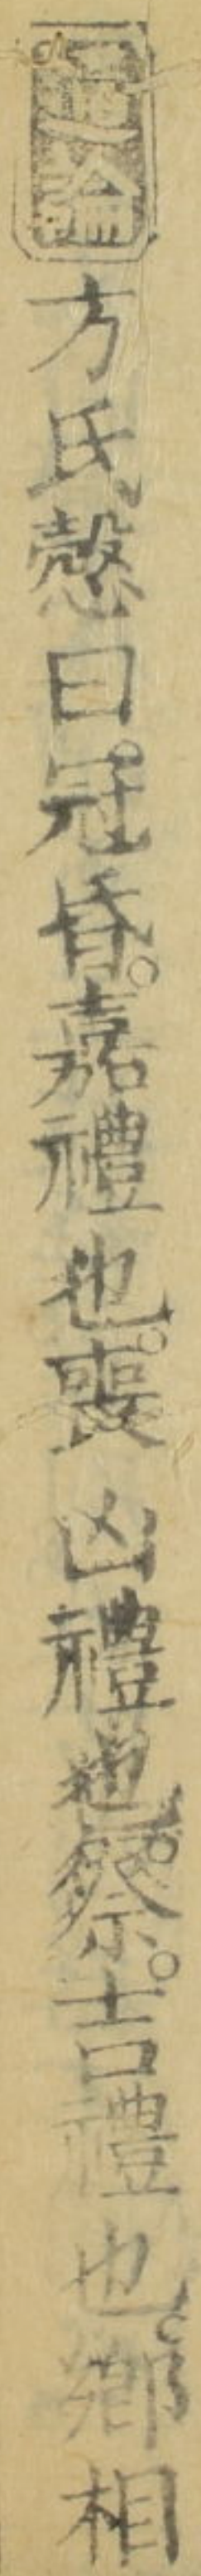 通論方氏慤曰。冠昏。嘉禮也。喪凶禮也。祭。吉禮也。鄉相